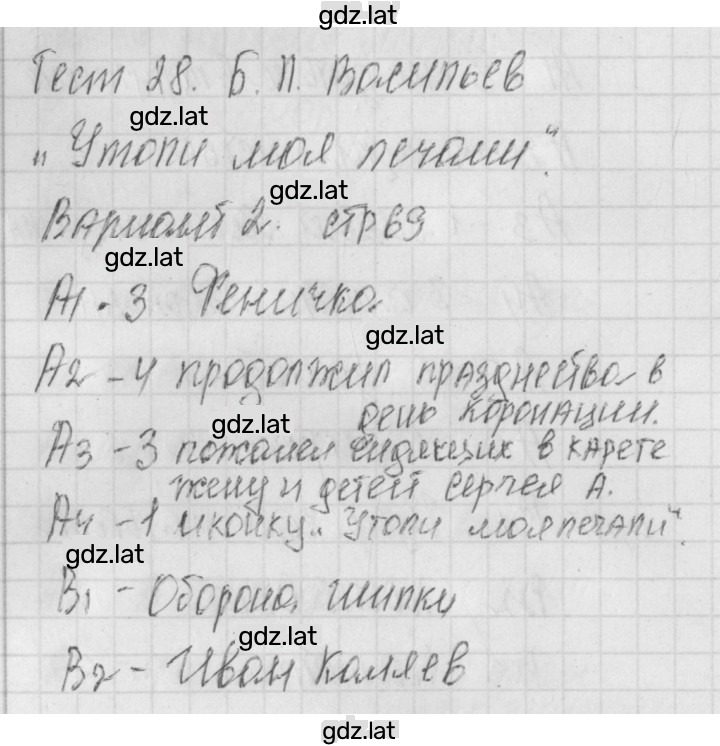 gdz.lat
Тест 28. Б. П. Васильев
gdz.lat
„Утоли моя печали“.
gdz.lat
Вариант 2. стр 69
gdz.lat
А1 - 3 Феничка.
gdz.lat
А2 - 4 продолжил празднества в
день коронации.
gdz.lat
А3 - 3 пожалел сидящих в карете
жену и детей Сергея А.
А4 - 1 иконку „Утоли моя печали“.
gdz.lat
В1 - Оборона Шипки
gdz.lat
В2 - Иван Каляев
gdz.lat